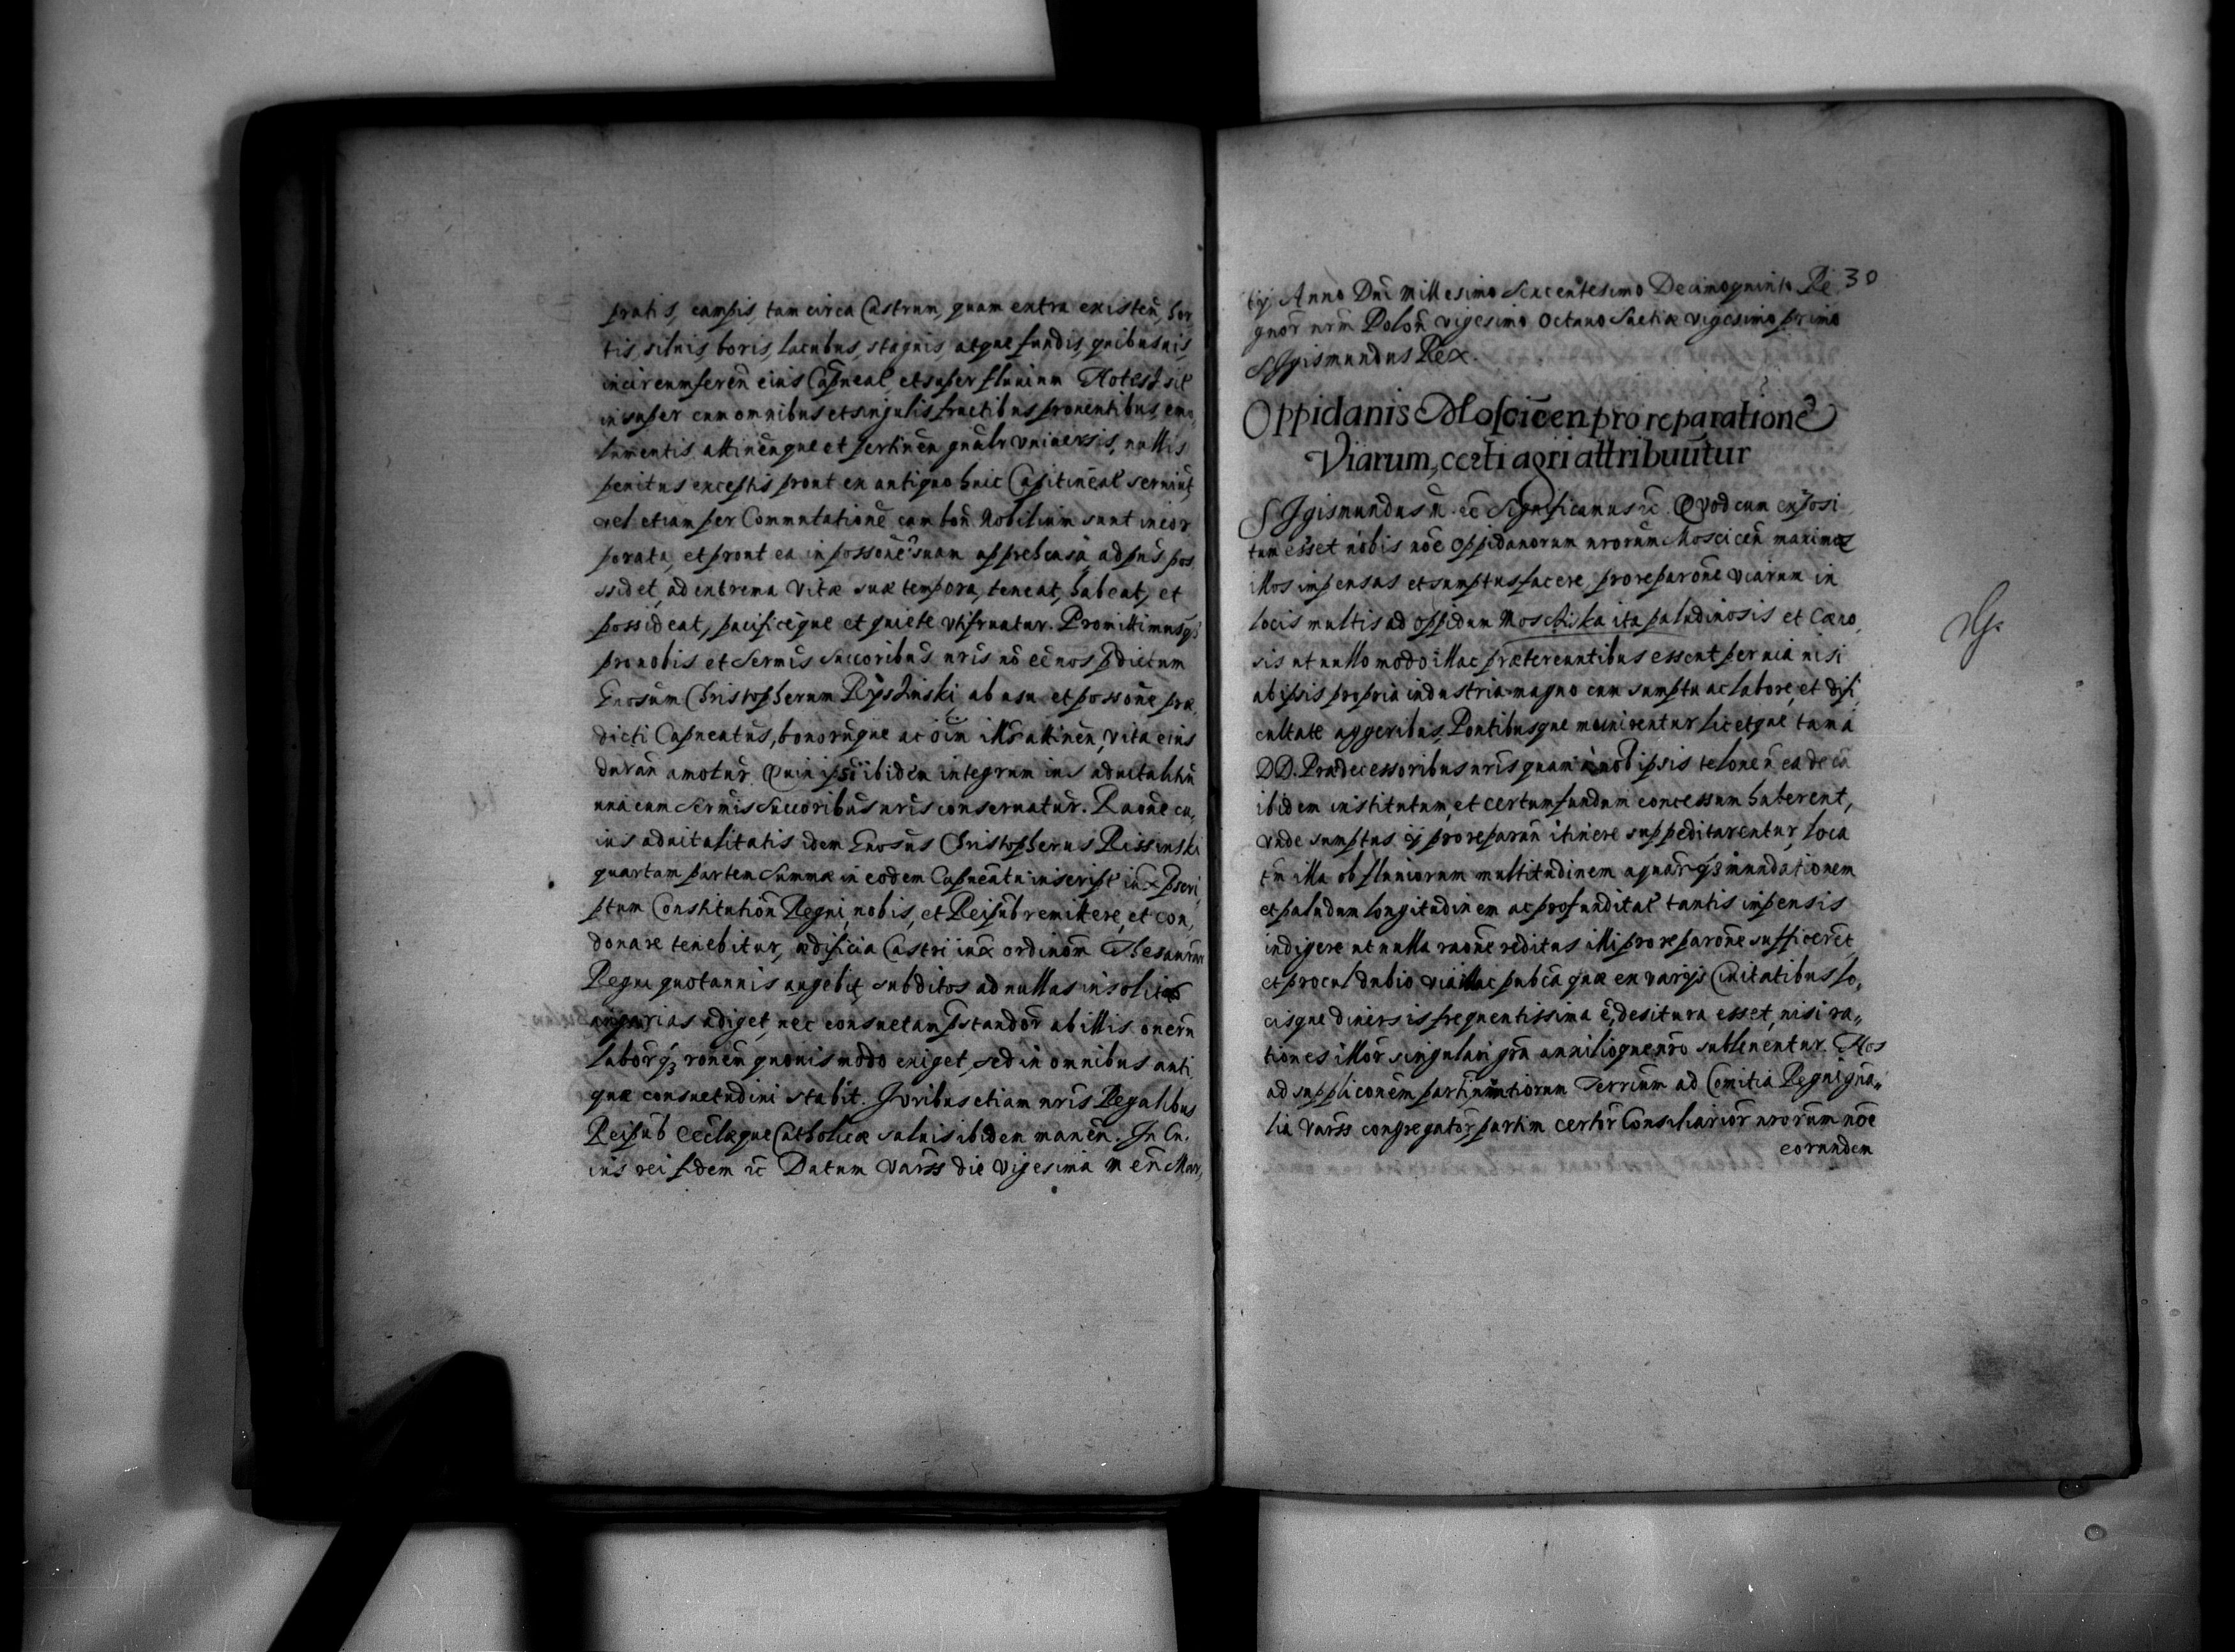 pratis, campis, tam circa Castrum, quam extra existeñ, hor
tis, siluis, boris, lacubus, stagnis, atque fundis, quibusuis,
incircumfereñ eius Capneal, et super fluuium
insuper cum omnibus et singulis fructibus prouentibus, emo
lumentis attineñque et pertineñ gnãlr vniuersis, nullis
penitus exceptis prout ex antiquo huic Capitineal seruiut,
vel etiam per Commutationẽ cum boñ Nobilium sunt incor
porata, et prout ea in possonẽ suam apprehensa, ad pñs pos
sidet, ad extrema vitæ suæ tempora, teneat, habeat, et
possideat, pacificeque et quiete vtifruatur. Promittimusq3
pro nobis et Sermis Succoribus nris nõ eẽ nos pdictum
Gnosum Christopherum Rÿsinski, ab usu et possone præ
dicti Capneatus, bonorũque ac oim illi attineñ, vita eius
durañ amotur. Quin ipsi ibidem integrum ius aduitaltũ
una cum Sermis Succoribus nris conseruatur. Raone cu,
ius aduitalitatis idem Gnosus Christopherus Rissinski
quartam partem Summæ in eodem Capneatu inscript iux pscri
ptum Constitution Regni, nobis, et Reipub remittere, et con,
donare tenebitur, ædificia Castri iux ordinom Thesaurum
Regni quotannis augebit, subditos ad nullas insolitas
angarias adiget, nec consuetam pstandor ab illis onerũ
laborq3 ronem quouis modo exiget, sed in omnibus anti
quæ consuetudini stabit. Juribus etiam nris Regalibus
Reipub Ecclæque Catholicæ saluis ibidem maneñ. In Cu,
ius rei fidem ec Datum Varss die Vigesima M eñ Mar,
30
tij Anno Dni Millesimo Sexcentesimo Decimoquinto Re
gnor nrm Poloñ vigesimo Octauo Suetiæ vigesimo primo
Sigismundus Rex.
Oppidanis Mosciceñ pro reparationẽ
Viarum, certi agri attribuũtur
SJgismundus ec Significamus ec Quod cum exposi
tum esset nobis nõe Oppidanorum nrorum Mosciceñ maximos
illos impensas et sumptus facere pro reparone viarum in
locis multis ad oppidum Moschiska ita paludinosis et Cæno,
sis ut nullo modo illac prætereuntibus essent peruia nisi
ab ipsis propria industria magno cum sumptu ac labore, et difi
cultate aggeribus, Pontibusque munirentur licetque tam a
DD. Prædecessoribus nris quam a nob ipsis teloneũ ea de cã
ibidem institutum, et certum fundum concessum haberent,
vnde sumptus ij pro reparañ itinere suppeditarentur, loca
tñ illa ob fluuiorum multitudinem aquarq3 inundationem
et paludum longitudinem ac profunditat tantis impensis
indigere ut nulla raone reditus illi pro reparone sufficeret,
et procul dubio via illac pubca quæ ex varijs Ciuitatibus lo,
cisque diuersis frequentissima ẽ, desitura esset, nisi ra,,
tiones illor singulari gra auxilioque nro subleuentur. Nos
ad supplicoñem partim nuntiorum Terrium ad Comitia Regni gna,,
lia Varss congregator partim certor Consiliarior nrorum nõe
eorundem